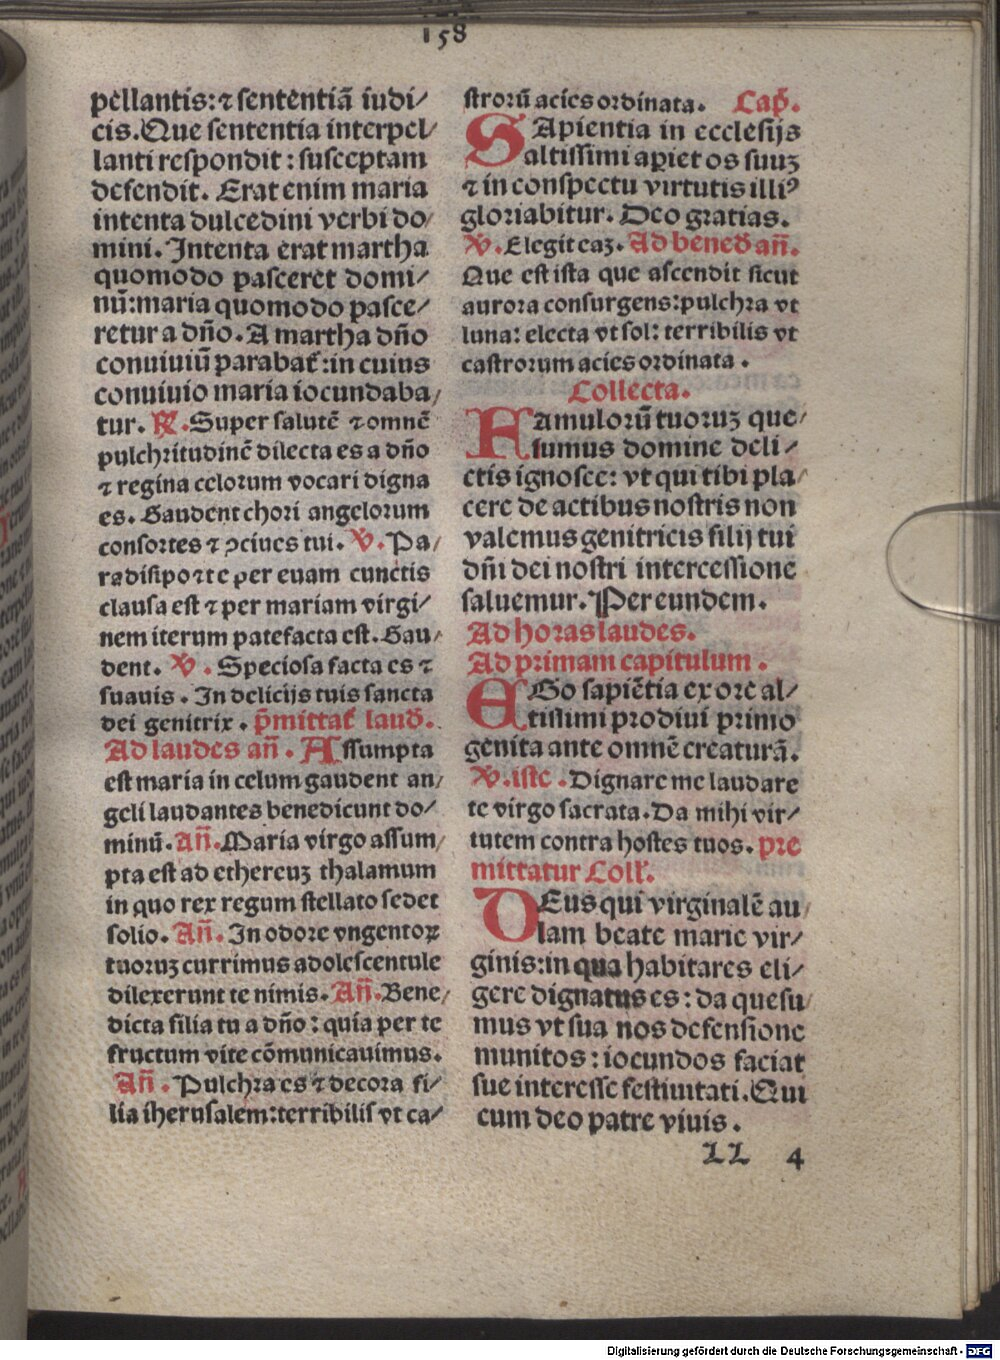 158
pellantis:⁊ sententiā iudi/
cis.Que sententia interpel/
lanti respondit : susceptam
defendit. Erat enim maria
intenta dulcedini verbi do/
mini. Intenta erat martha
quomodo pasceret domi/
nū:maria quomodo pasce/
retur a dn̄o. A martha dn̄o
conuiuiū parabat᷑:in cuius
conuiuio maria iocundaba/
tur. ℟. Super salutē ⁊ omnē
pulchritudinē dilecta es a dn̄o
⁊ regina celorum vocari digna
es. Gaudent chori angelorum
consortes ⁊ ↄciues tui. ℣. Pa/
radisi porte per euam cunctis
clausa est ⁊ per mariam virgi/
nem iterum patefacta est. Gau/
dent. ℣. Speciosa facta es ⁊
suauis. In delicijs tuis sancta
dei genitrix. p̄mittat᷑ laud̄.
Ad laudes an̄. Assumpta
est maria in celum gaudent an/
geli laudantes benedicunt do/
minū. An̄. Maria virgo assum/
pta est ad ethereuꝫ thalamum
in quo rex regum stellato sedet
solio. An̄. In odore vngentoꝝ
tuoruꝫ currimus adolescentule
dilexerunt te nimis. An̄. Bene/
dicta filia tu a dn̄o : quia per te
fructum vite cōmunicauimus.
An̄. Pulchra es ⁊ decora fi/
lia iherusalem:terribilis vt ca/
strorū acies ordinata. Cap̄.
SApientia in ecclesijs
altissimi aꝑiet os suuꝫ
⁊ in conspectu virtutis illiꝰ
gloriabitur. Deo gratias.
℣. Elegit eaꝫ. Ad bened̄ an̄.
Que est ista que ascendit sicut
aurora consurgens:pulchra vt
luna: electa vt sol: terribilis vt
castrorum acies ordinata.
Collecta.
FAmulorū tuoruꝫ que/
sumus domine deli/
ctis ignosce: vt qui tibi pla/
cere de actibus nostris non
valemus genitricis filij tui
dn̄i dei nostri intercessione
saluemur. Per eundem.
Ad horas laudes.
Ad primam capitulum.
EGo sapiētia ex ore al/
tissimi prodiui primo
genita ante omnē creaturā.
℣. iste. Dignare me laudare
te virgo sacrata. Da mihi vir/
tutem contra hostes tuos. pre
mittatur Coll̄.
DEus qui virginalē au/
lam beate marie vir/
ginis:in qua habitares eli/
gere dignatus es : da quesu/
mus vt sua nos defensione
munitos : iocundos faciat
sue interesse festiuitati. Qui
cum deo patre viuis.
LL 4
Digitalisierung gefördert durch die Deutsche Forschungsgemeinschaft - DFG